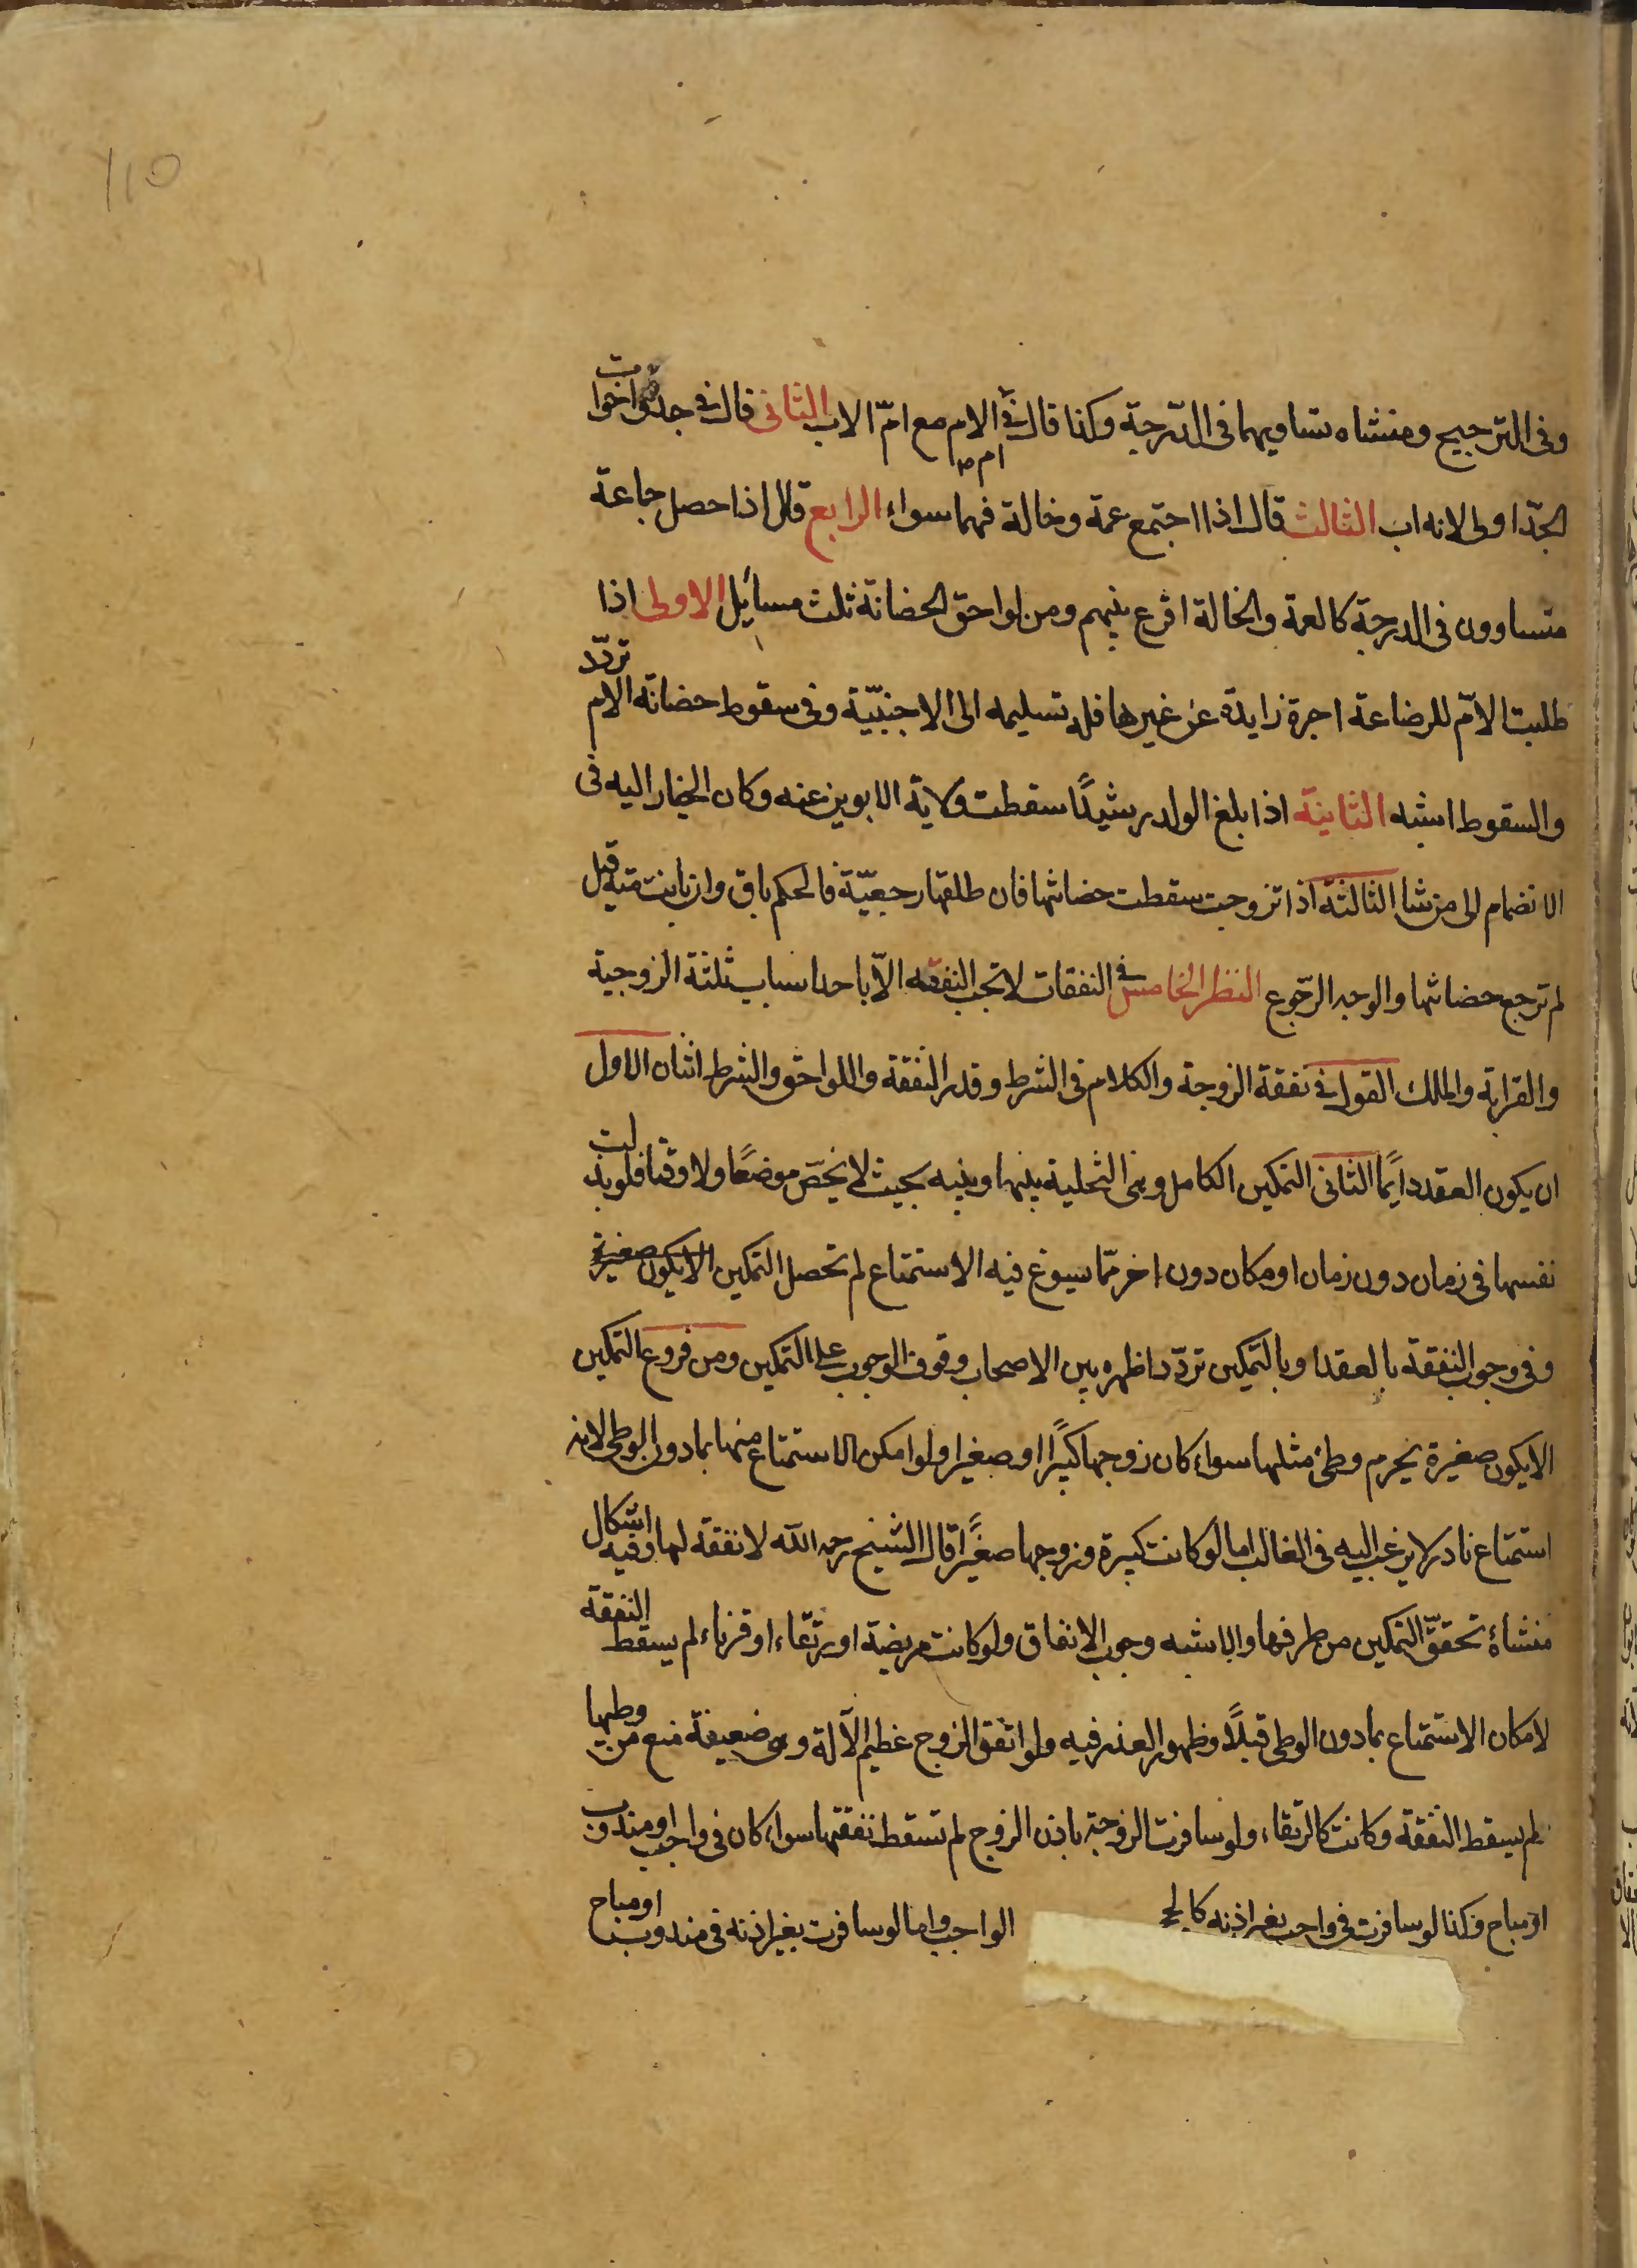 110
وفى الترجيح ومنشاه تساويهما فى الدّرجة وكذا قال فى ام الام مع امّ الاب الثانى قال فى جدة واخوات
الجدّ اولى لانه اب الثالث قال اذا اجتمع عمة وخالة فهما سواء الرابع قال اذا حصل جماعة
متساوون فى الدرجة كالعمة والخالة اقرع بينهم ومن لواحق الحضانة ثلث مسائل الاولى اذا
طلبت الامّ للرضاعة اجرة زايدة عن غيرها فله تسليمه الى الاجنبيّة وفى سقوط حضانة الام تردّد
والسقوط اشبه الثانية اذا بلغ الولد رشيدًا سقطت ولاية الابوين عنه وكان الخيار اليه فى
الانضمام الى من شا الثالثة اذا تزوجت سقطت حضانتها فان طلقها رجعيّة فالحكم باق وان بانت منه قيل
لم ترجع حضانتها والوجه الرّجوع النظر الخامس فى النفقات لا تجب النفقه الّا باحد اسباب ثلثة الزوجية
والقرابة والملك القول فى نفقة الزوجة والكلام فى الشرط وقدر النفقة واللواحق والشرط اثنان الاول
ان يكون العقد دايمًا الثانى التمكين الكامل وهى التخلية بينها وبينه بحيث لا يخصّ موضعًا ولا وقتا فلو بذلت
نفسها فى زمان دون زمان او مكان دون اخر ممّا يسوغ فيه الاستمتاع لم تحصل التمكين الايكون صغيرة
وفى وجوب النفقة بالعقد او بالتمكين تردّد اظهره بين الاصحاب وقوف الوجوب على التمكين ومن فروع التمكين
الايكون صغيرة يحرم وطئ مثلها سواء كان زوجها كبيرًا او صغيرا ولو امكن الاستمتاع منها بما دون الوطى لانه
استمتاع نادر لا يرغب اليه فى الغالب اما لو كانت كبيرة وزوجها صغيرًا قال الشيخ رحمه الله لا نفقة لها وفيه اشكال
منشاؤه تحقّق التمكين من طرفها والاشبه وجوب الانفاق ولو كانت مريضة او رتقاء او قرناء لم يسقط النفقة
لامكان الاستمتاع بما دون الوطى قبلًا وظهور العذر فيه ولو اتفق الزوج عظيم الآلة وهى ضعيفة منع من وطيها
لم يسقط النفقة وكانت كالرتقاء ولو سافرت الزوجة باذن الزوج لم تسقط نفقتها سواء كان فى واجب او مندوب
او مباح وكذا لو سافرت فى واجب بغير اذنه كالحج الواجب واما لو سافرت بغير اذنه فى مندوب او مباح